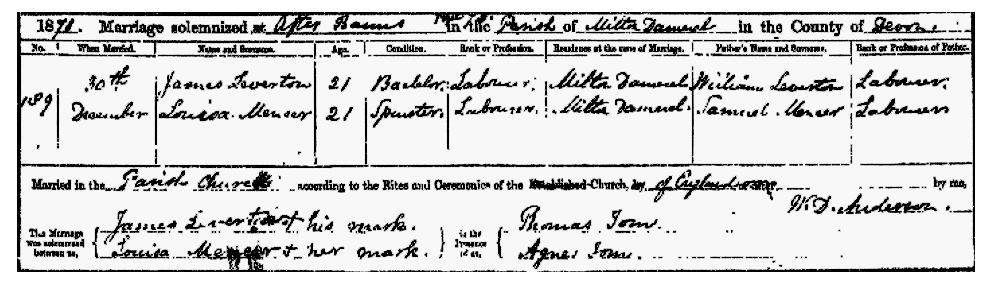 1871. Marriage solemnized at After Banns in the Parish of Milton Damerel in the County of Devon.
No. When Married. Name and Surname. Age. Condition. Rank or Profession. Residence at the time of Marriage. Father's Name and Surname. Rank or Profession of Father.
189 30th James Leverton 21 Bachelor. Labourer. Milton Damerel William Leverton Labourer.
December Louisa Mencer 21 Spinster. Labourer. Milton Damerel. Samuel Mencer Labourer
Married in the Parish Church according to the Rites and Ceremonies of the Established Church, by of England by me,
W.D. Anderson.
This Marriage was solemnized between us, James Leverton + his mark. In the Presence of us, Thomas Tom
Louisa Mencer + her mark. Agnes Tom.